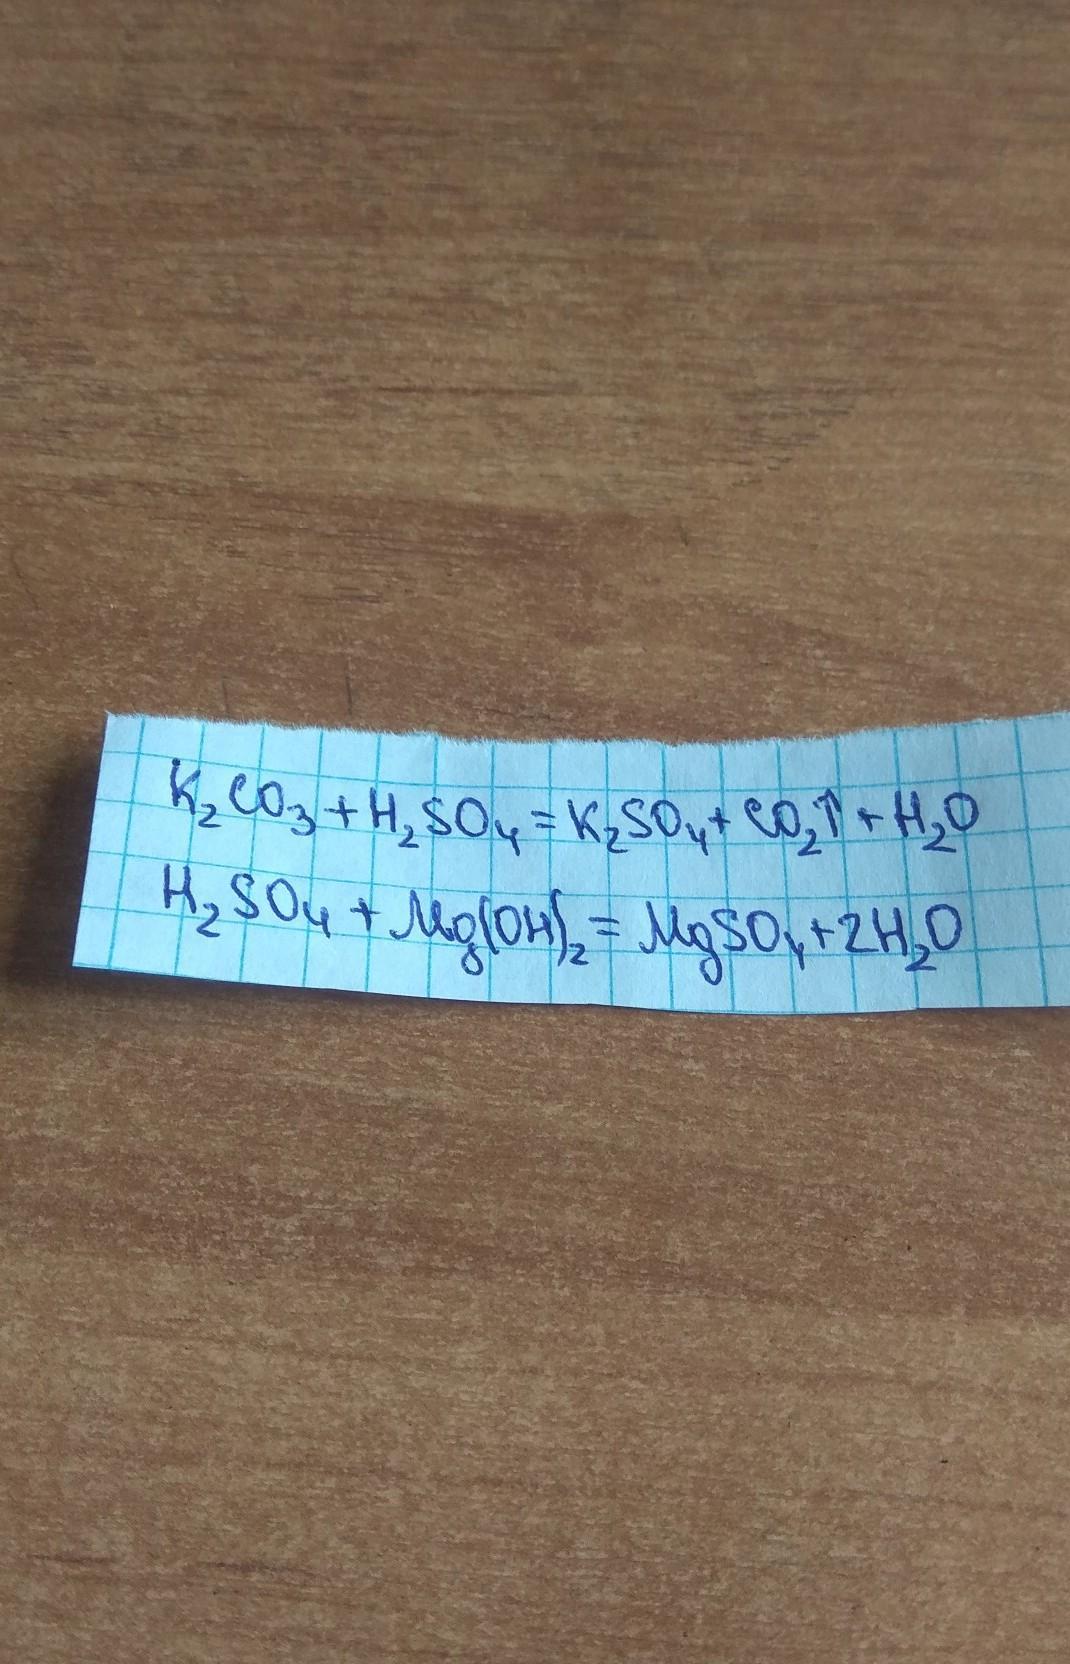 K₂CO₃ + H₂SO₄ = K₂SO₄ + CO₂↑ + H₂O
H₂SO₄ + Mg(OH)₂ = MgSO₄ + 2H₂O